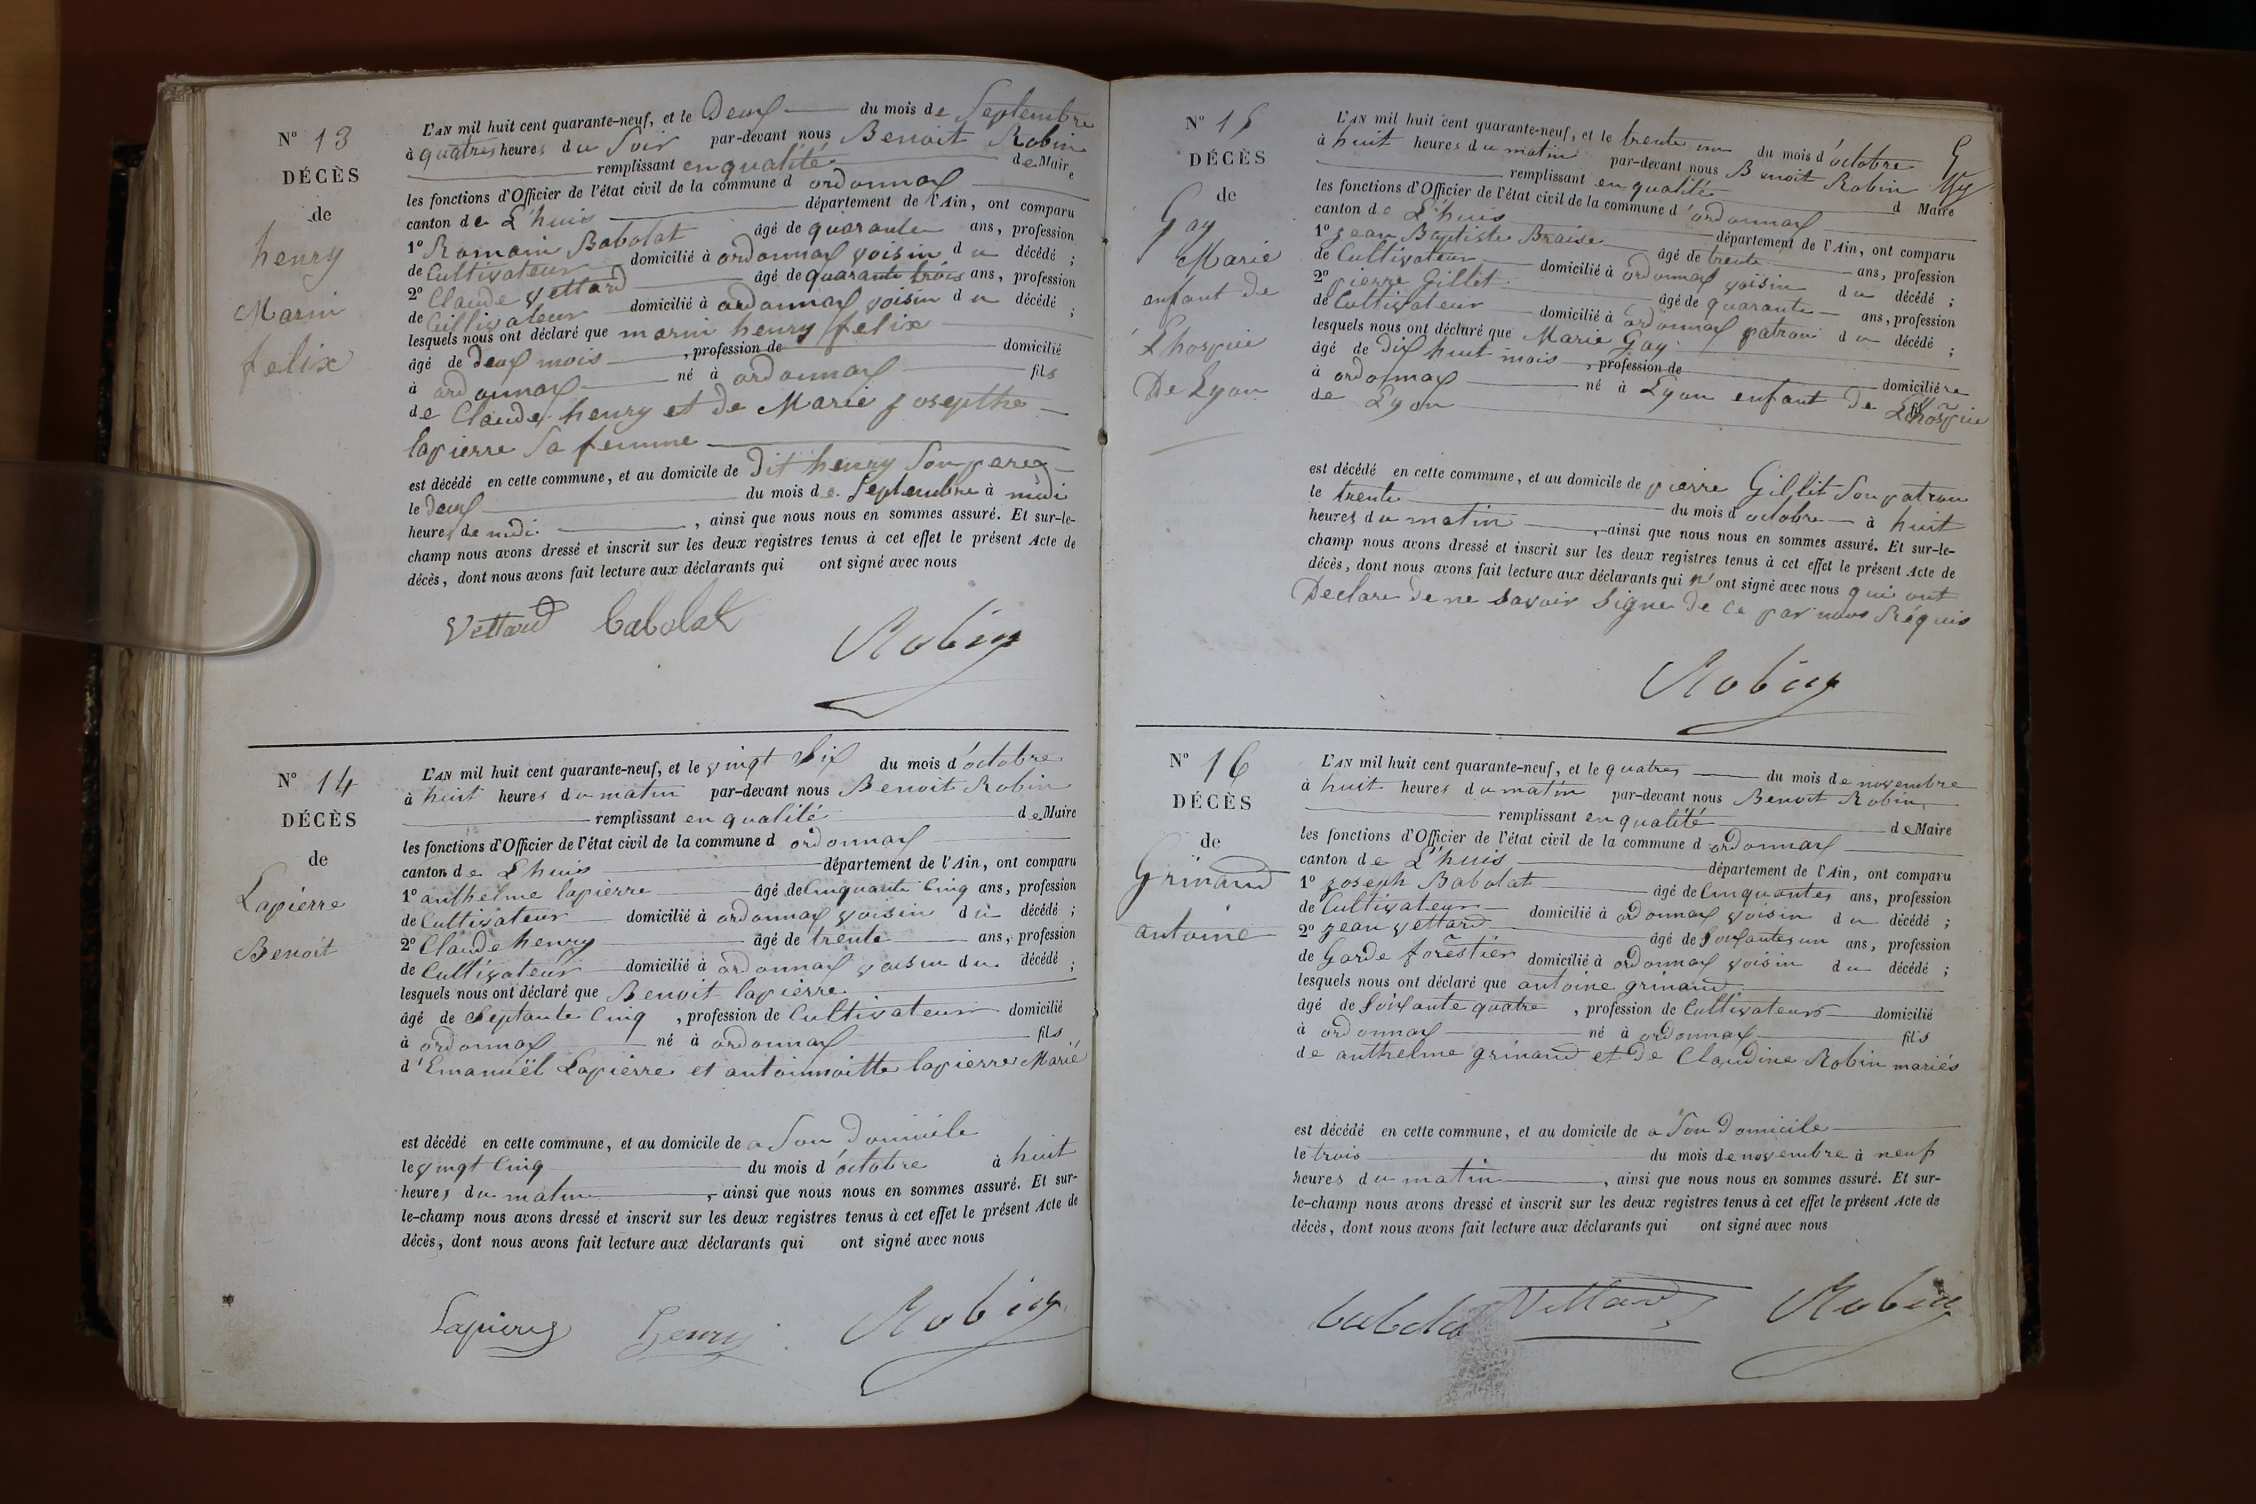 N° 13
DÉCÈS
de
henry
Marin
felix
L'AN mil huit cent quarante-neuf, et le Deux du mois de Septembre
à quatres heures du Soir par-devant nous Benoit Robin
remplissant en qualité de Maire
les fonctions d'Officier de l'état civil de la commune d ordonnax
canton de L'huis département de l'Ain, ont comparu
1° Romain Babolat âgé de quarante ans, profession
de Cultivateur domicilié à ordonnax voisin du décédé ;
2° Claude Vettard âgé de quarante trois ans, profession
de Cultivateur domicilié à ordonnax voisin du décédé ;
lesquels nous ont déclaré que marin henry felix
âgé de deux mois , profession de domicilié
à ordonnax né à ordonnax fils
de Claude henry et de Marie Josepthe
lapierre Sa femme
est décédé en cette commune, et au domicile de dit henry Son pere
le deux du mois de Septembre à midi
heures de midi , ainsi que nous nous en sommes assuré. Et sur-le-
champ nous avons dressé et inscrit sur les deux registres tenus à cet effet le présent Acte de
décès, dont nous avons fait lecture aux déclarants qui ont signé avec nous
Vettard babolat
Robin
N° 14
DÉCÈS
de
Lapierre
Benoit
L'AN mil huit cent quarante-neuf, et le vingt Six du mois d'octobre
à huit heures du matin par-devant nous Benoit Robin
remplissant en qualité de Maire
les fonctions d'Officier de l'état civil de la commune d ordonnax
canton de L'huis département de l'Ain, ont comparu
1° anthelme lapierre âgé de Cinquante Cinq ans, profession
de Cultivateur domicilié à ordonnax voisin du décédé ;
2° Claude henry âgé de trente ans, profession
de Cultivateur domicilié à ordonnax voisin du décédé ;
lesquels nous ont déclaré que Benoit lapierre
âgé de Septante Cinq , profession de Cultivateur domicilié
à ordonnax né à ordonnax fils
d'Emanuël Lapierre et antoinnoitte lapierre Marié
est décédé en cette commune, et au domicile de a Son Domicile
le vingt Cinq du mois d'octobre à huit
heures du matin , ainsi que nous nous en sommes assuré. Et sur-
le-champ nous avons dressé et inscrit sur les deux registres tenus à cet effet le présent Acte de
décès, dont nous avons fait lecture aux déclarants qui ont signé avec nous
Lapierre henry Robin
N° 15
DÉCÈS
de
Gay
Marie
enfant de
L'hospice
De Lyon
L'AN mil huit cent quarante-neuf, et le trente un du mois d'octobre
à huit heures du matin par-devant nous Benoit Robin
remplissant en qualité d Maire
les fonctions d'Officier de l'état civil de la commune d'ordonnax
canton de L'huis département de l'Ain, ont comparu
1° Jean Baptiste Braise âgé de trente ans, profession
de Cultivateur domicilié à ordonnax voisin du décédé ;
2° pierre Gillet âgé de quarante ans, profession
de Cultivateur domicilié à ordonnax patron du décédé ;
lesquels nous ont déclaré que Marie Gay
âgé de Dix huit mois , profession de domicilié re
à ordonnax né à Lyon enfant de L'hospice
de Lyon
est décédé en cette commune, et au domicile de pierre Gillet Son patron
le trente du mois d octobre à huit
heures du matin , ainsi que nous nous en sommes assuré. Et sur-le-
champ nous avons dressé et inscrit sur les deux registres tenus à cet effet le présent Acte de
décès, dont nous avons fait lecture aux déclarants qui n'ont signé avec nous qui ont
Declare de ne Savoir Signe de ce par nous Réquis
Robin
N° 16
DÉCÈS
de
Grinand
antoine
L'AN mil huit cent quarante-neuf, et le quatres du mois de novembre
à huit heures du matin par-devant nous Benoit Robin
remplissant en qualité de Maire
les fonctions d'Officier de l'état civil de la commune d ordonnax
canton de L'huis département de l'Ain, ont comparu
1° Joseph Babolat âgé de Cinquantes ans, profession
de Cultivateur domicilié à ordonnax voisin du décédé ;
2° Jean Vettard âgé de Soixantes un ans, profession
de Garde forestier domicilié à ordonnax voisin du décédé ;
lesquels nous ont déclaré que antoine grinand
âgé de Soixante quatre , profession de Cultivateur domicilié
à ordonnax né à ordonnax fils
de anthelme grinand et de Claudine Robin mariés
est décédé en cette commune, et au domicile de a Son Domicile
le trois du mois de novembre à neuf
heures du matin , ainsi que nous nous en sommes assuré. Et sur-
le-champ nous avons dressé et inscrit sur les deux registres tenus à cet effet le présent Acte de
décès, dont nous avons fait lecture aux déclarants qui ont signé avec nous
babolat Vettard Robin